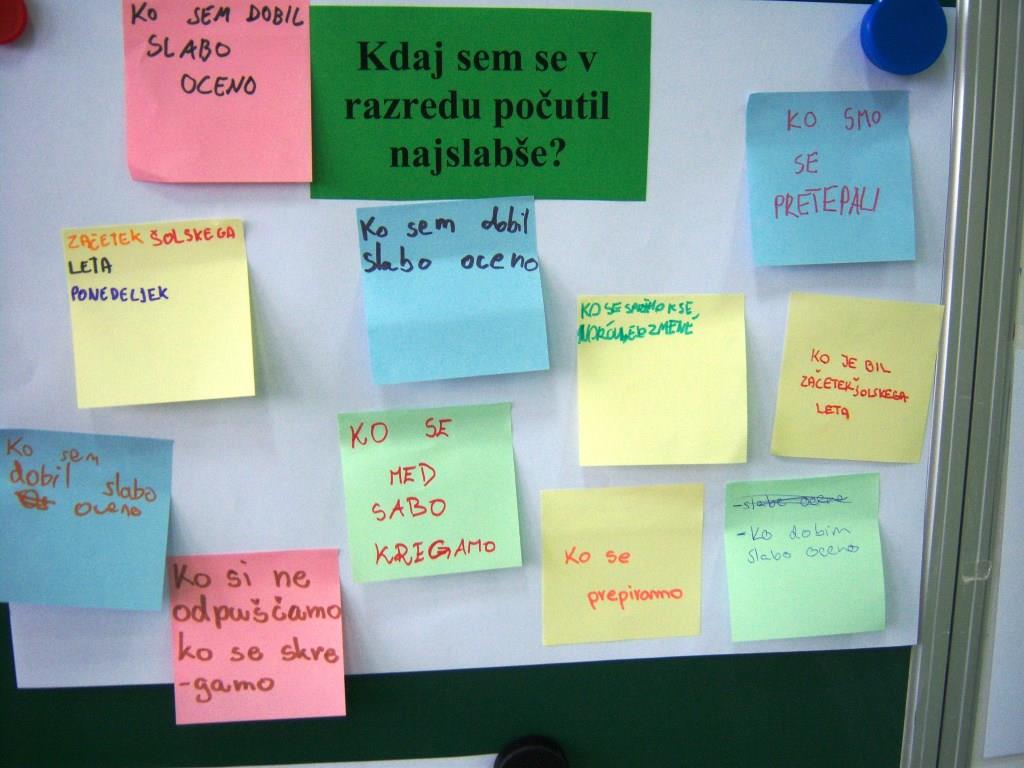 KO SEM DOBIL
SLABO
OCENO
Kdaj sem se v
razredu počutil
najslabše?
KO SMO
SE
PRETEPALI
ZAČETEK ŠOLSKEGA
LETA
PONEDELJEK
Ko sem dobil
slabo oceno
KO SE
KO JE BIL
ZAČETEK ŠOLSKEGA
LETA
Ko sem
dobil slabo
oceno
KO SE
MED
SABO
KREGAMO
Ko se
prepiramo
-slabe ocene
-Ko dobim
slabo oceno
Ko si ne
odpuščamo
ko se skre
-gamo